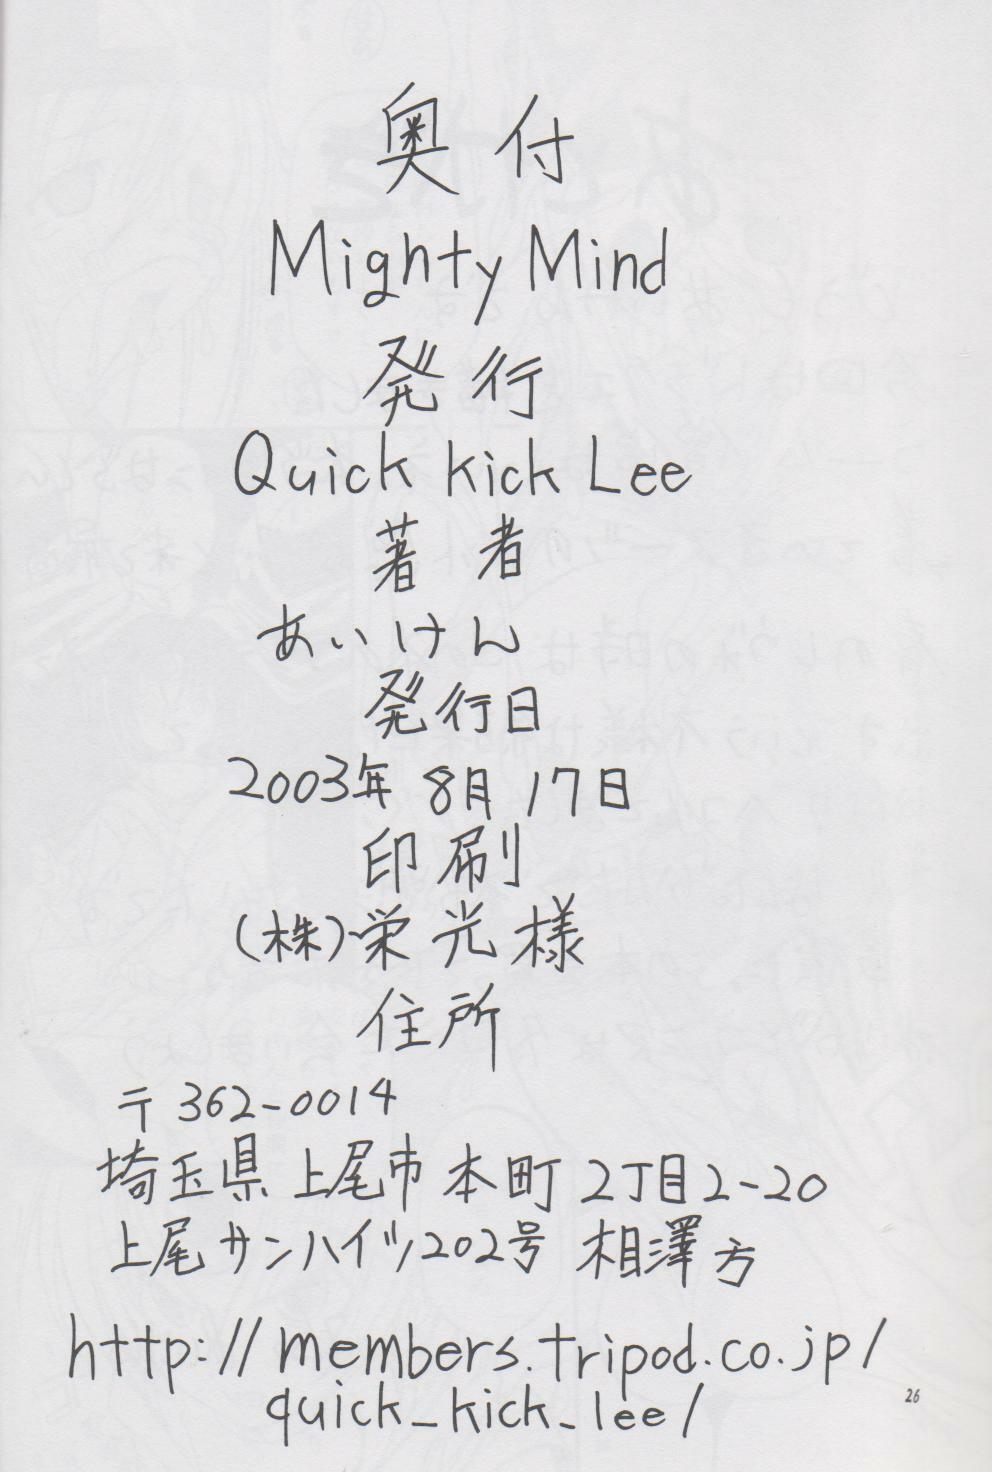 奥付
Mighty Mind
発行
Quick kick Lee
著者
あいけん
発行日
2003年 8月 17日
印刷
(株)栄光様
住所
〒362-0014
埼玉県 上尾市 本町 2丁目2-20
上尾サンハイツ202号 相澤方
http://members.tripod.co.jp/
quick_kick_lee/
26